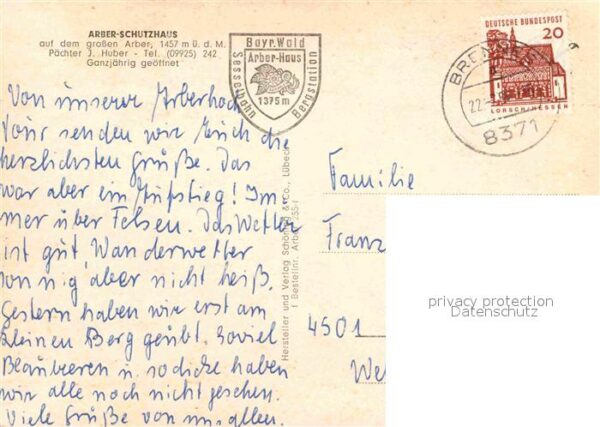 ARBER-SCHUTZHAUS
auf dem großen Arber, 1457 m ü. d. M.
Pächter J. Huber - Tel. (09925) 242
Ganzjährig geöffnet
Bayr. Wald
Arber-Haus
1375 m
Sesselbahn
Bergstation
DEUTSCHE BUNDESPOST
20
LORSCH/HESSEN
22.
8371
Von unserer Arberhoch
Tour senden wir Euch die
herzlichsten Grüße. Das
war aber ein Aufstieg! Im-
mer über Felsen. Das Wetter
ist gut, Wanderwetter
sonnig, aber nicht heiß.
Gestern haben wir erst am
kleinen Berg geübt. Soviel
Blaubeeren u. so dicke haben
wir alle noch nicht gesehen.
Viele Grüße von uns allen.
Hersteller und Verlag Schöning & Co., Lübeck
Bestellnr. Arber
Familie
Franz
4501
We
privacy protection
Datenschutz